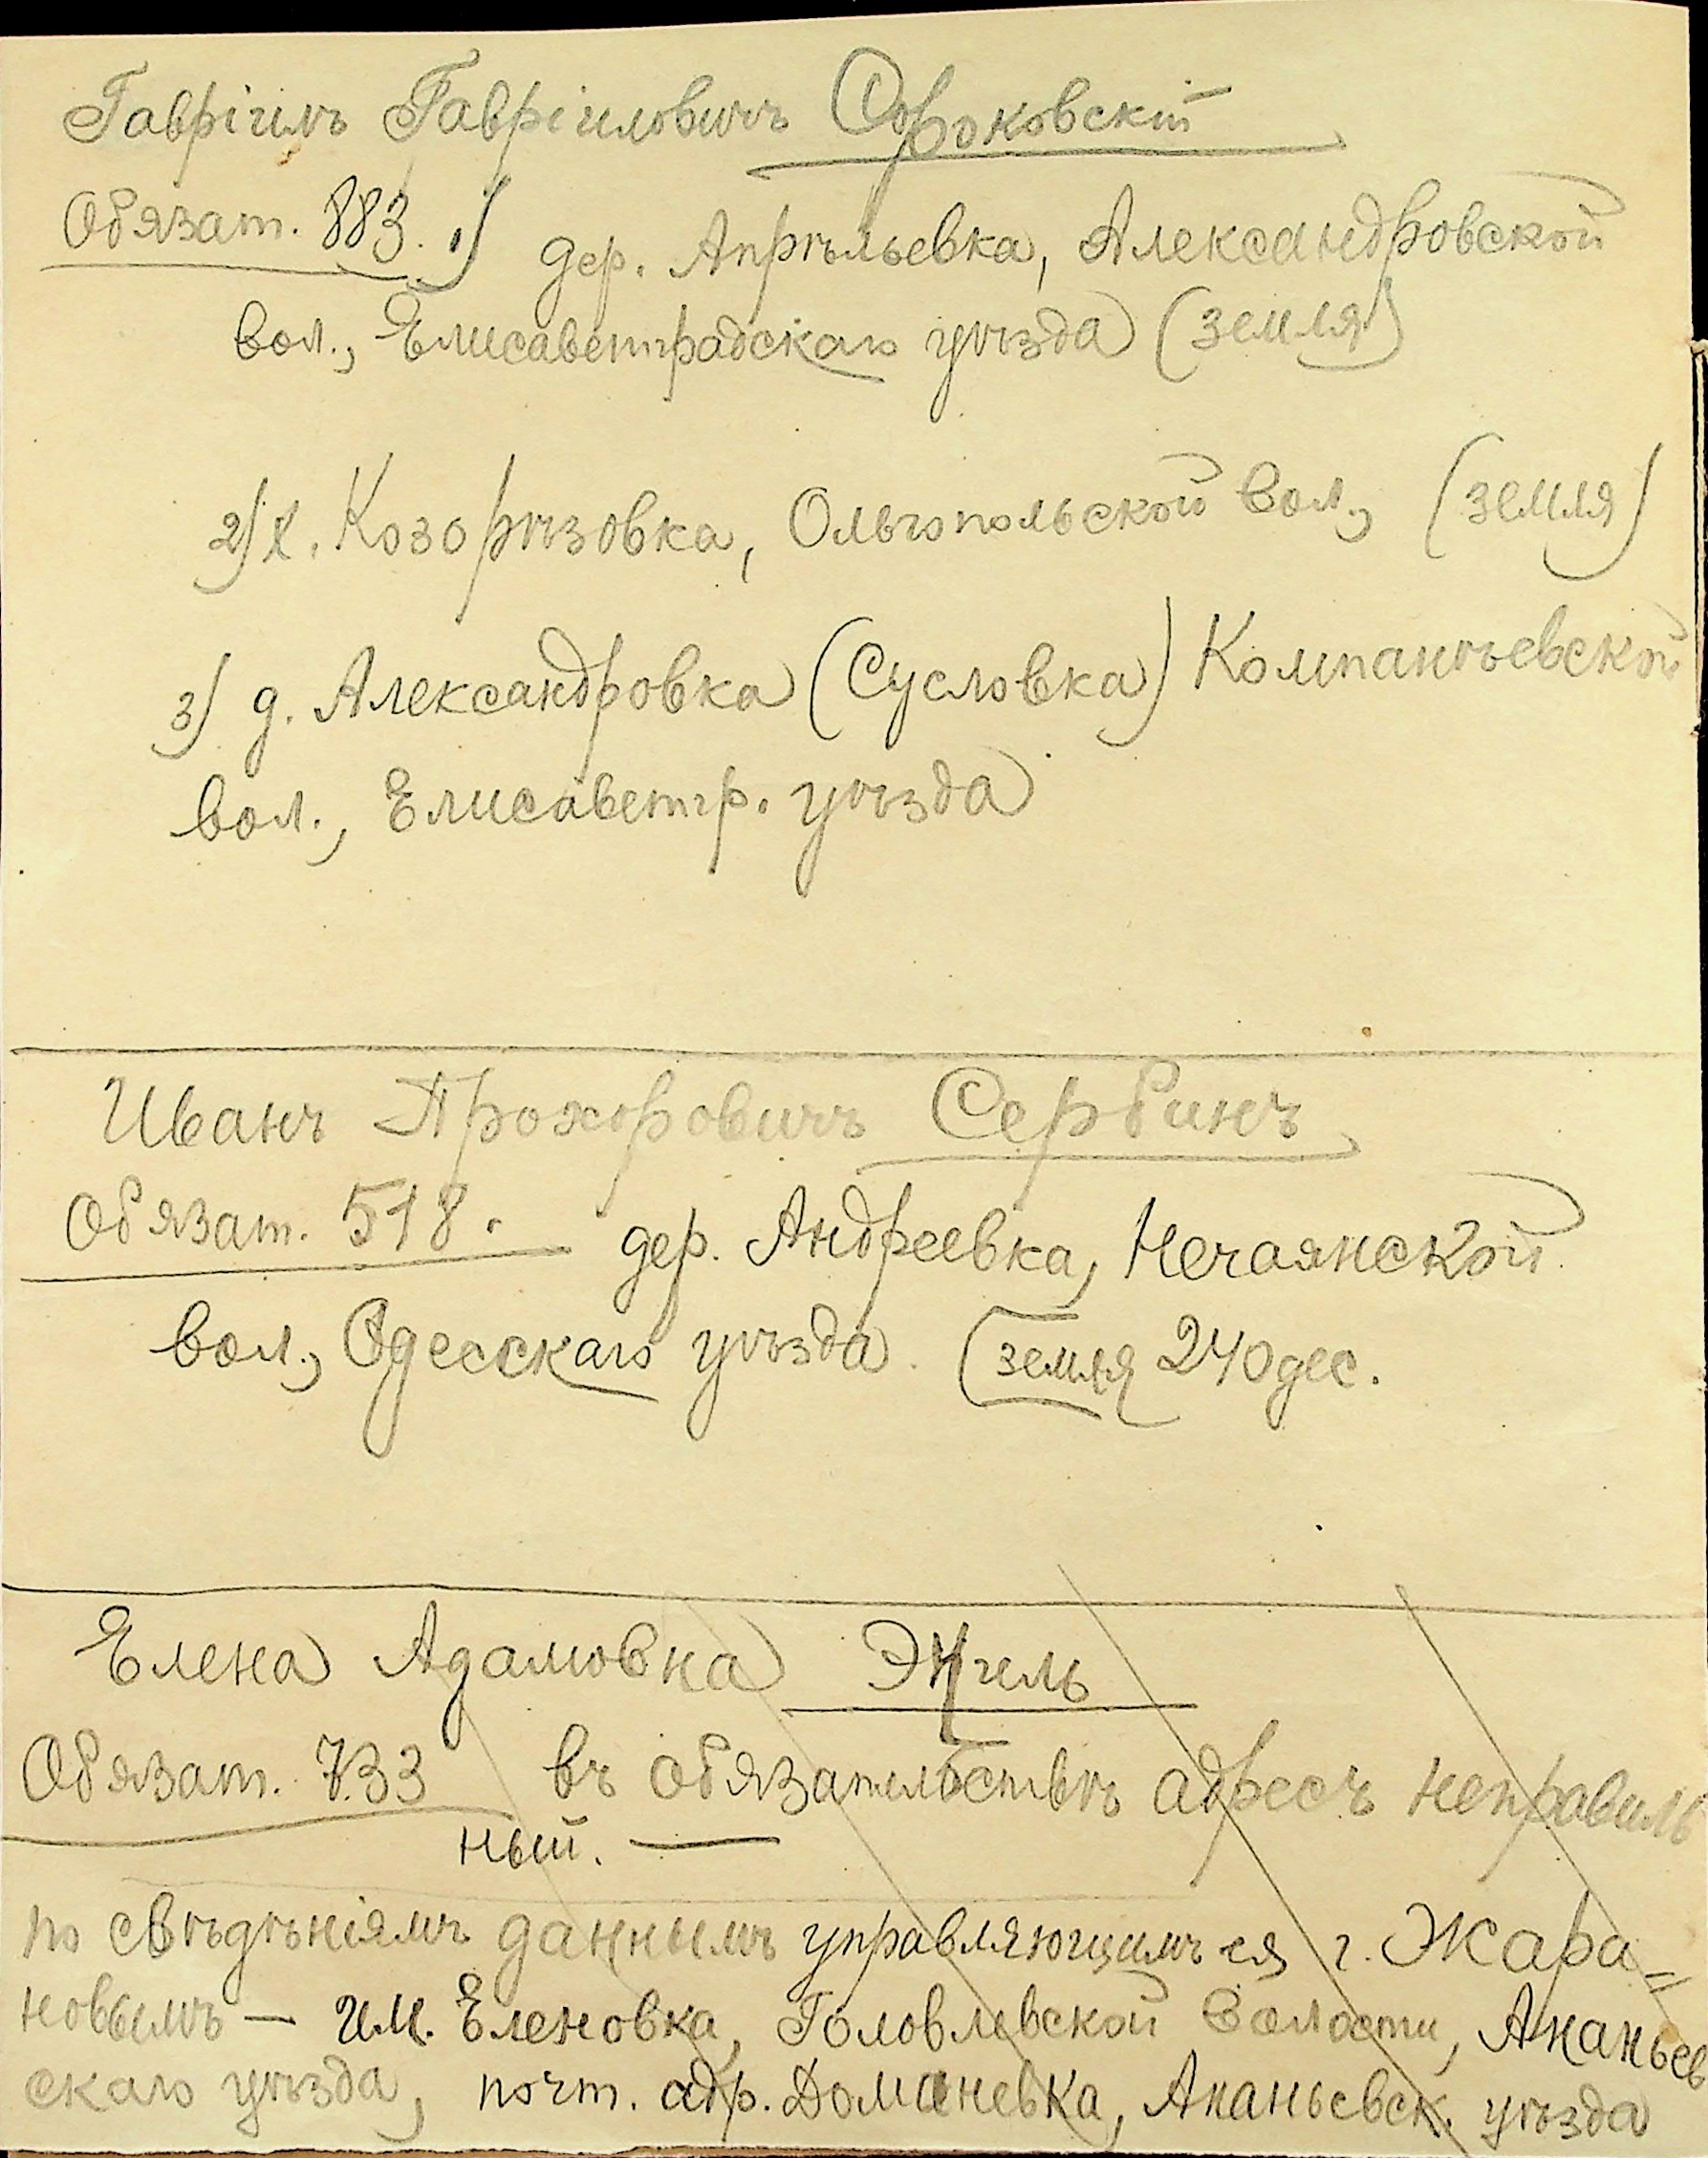 Гавріилъ Гавріиловичъ Сороковскій
Обязат. 883. 1) дер. Апрѣльевка, Александровской
вол., Елисаветградскаго уѣзда (земля)
2) х. Козорѣзовка, Ольгопольской вол., (земля)
3) д. Александровка (Сусловка) Компанѣевской
вол., Елисаветгр. уѣзда
Иванъ Прохоровичъ Сербинъ
Обязат. 518. дер. Андреевка, Нечаянской
вол., Одесскаго уѣзда. (земля 240 дес.
Елена Адамовна Энгель
Обязат. 733 въ обязательствѣ адресъ неправиль
ный. —
по свѣдѣніямъ даннымъ управляющимъ ея г. Жара=
новымъ — им. Еленовка, Головлевской волости, Ананьев
скаго уѣзда, почт. адр. Доманевка, Ананьевск. уѣзда